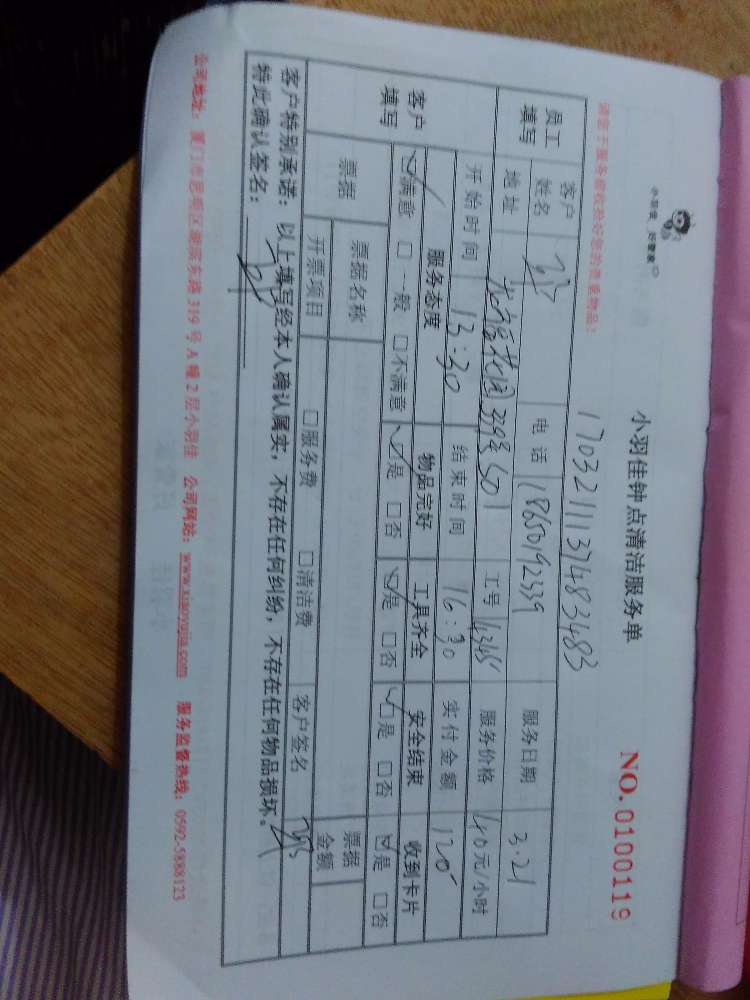 小羽佳 好管家
小羽佳钟点清洁服务单
NO. 0100119
请您于服务前收拾好您的贵重物品！
17032111137483483
员工填写 客户姓名 电话 18650192339 服务日期 3.21
地址 339号501 工号 4345 服务价格 40元/小时
开始时间 13:30 结束时间 16:30 实付金额 120
客户填写 服务态度 物品完好 工具齐全 安全结束 收到卡片
☑满意 □一般 □不满意 ☑是 □否 ☑是 □否 ☑是 □否 ☑是 □否
票据 票据名称 票据金额
开票项目 □服务费 □清洁费 客户签名
客户特别承诺：以上填写经本人确认属实，不存在任何纠纷，不存在任何物品损坏。
特此确认签名：
公司地址：厦门市思明区湖滨东路319号A幢2层小羽佳 公司网站：www.xiaoyujia.com 服务监督热线：0592-5888123